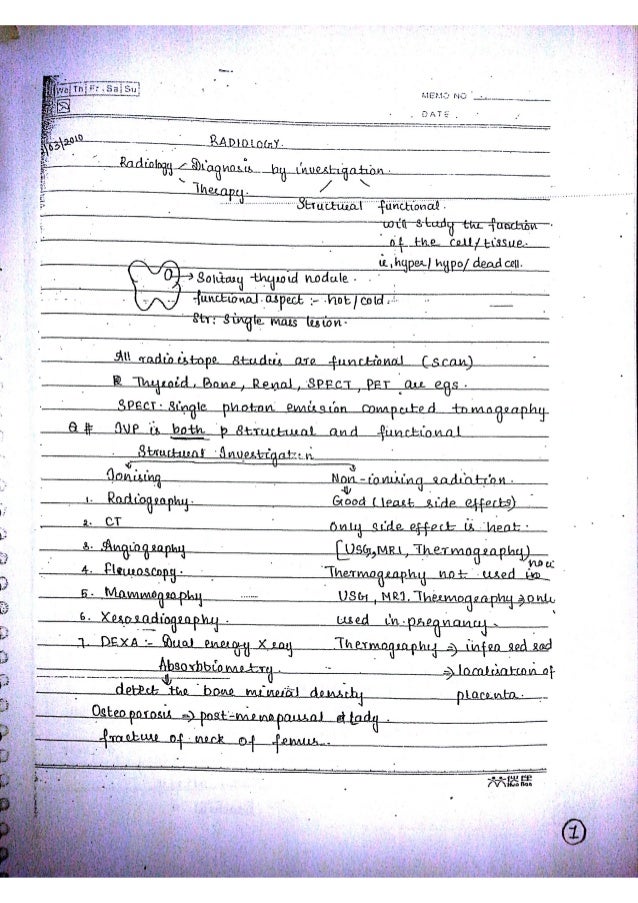 We Th Fr Sa Su
MEMO NO
DATE
/03/2010
RADIOLOGY.
Radiology Diagnosis by investigation.
Therapy. Structural functional.
will study the function
of the cell/tissue.
ie, hyper/hypo/dead cell.
→ Solitary thyroid nodule.
functional aspect :- hot/cold.
Str: Single mass lesion.
All radioistope studies are functional (scan)
Thyroid, Bone, Renal, SPECT, PET are egs.
SPECT: Single photon emission computed tomography
Q # IVP is both p structural and functional
Structural Investigation
Ionising Non-ionising radiation.
1. Radiography. Good (least side effects)
2. CT only side effect is heat.
3. Angiography [USG, MRI, Thermography]
4. Fleuroscopy. Thermography not used now
5. Mammography USG, MRI, Thermography → only
6. Xeroradiography. used in pregnancy.
7. DEXA :- Dual energy X ray Thermography ⇒ infra red rad
Absorbtiometry. ⇒ localisation of
detect the bone mineral density placenta.
Osteoporosis ⇒ post-menopausal lady.
fracture of neck of femur.
Huo Hao
1